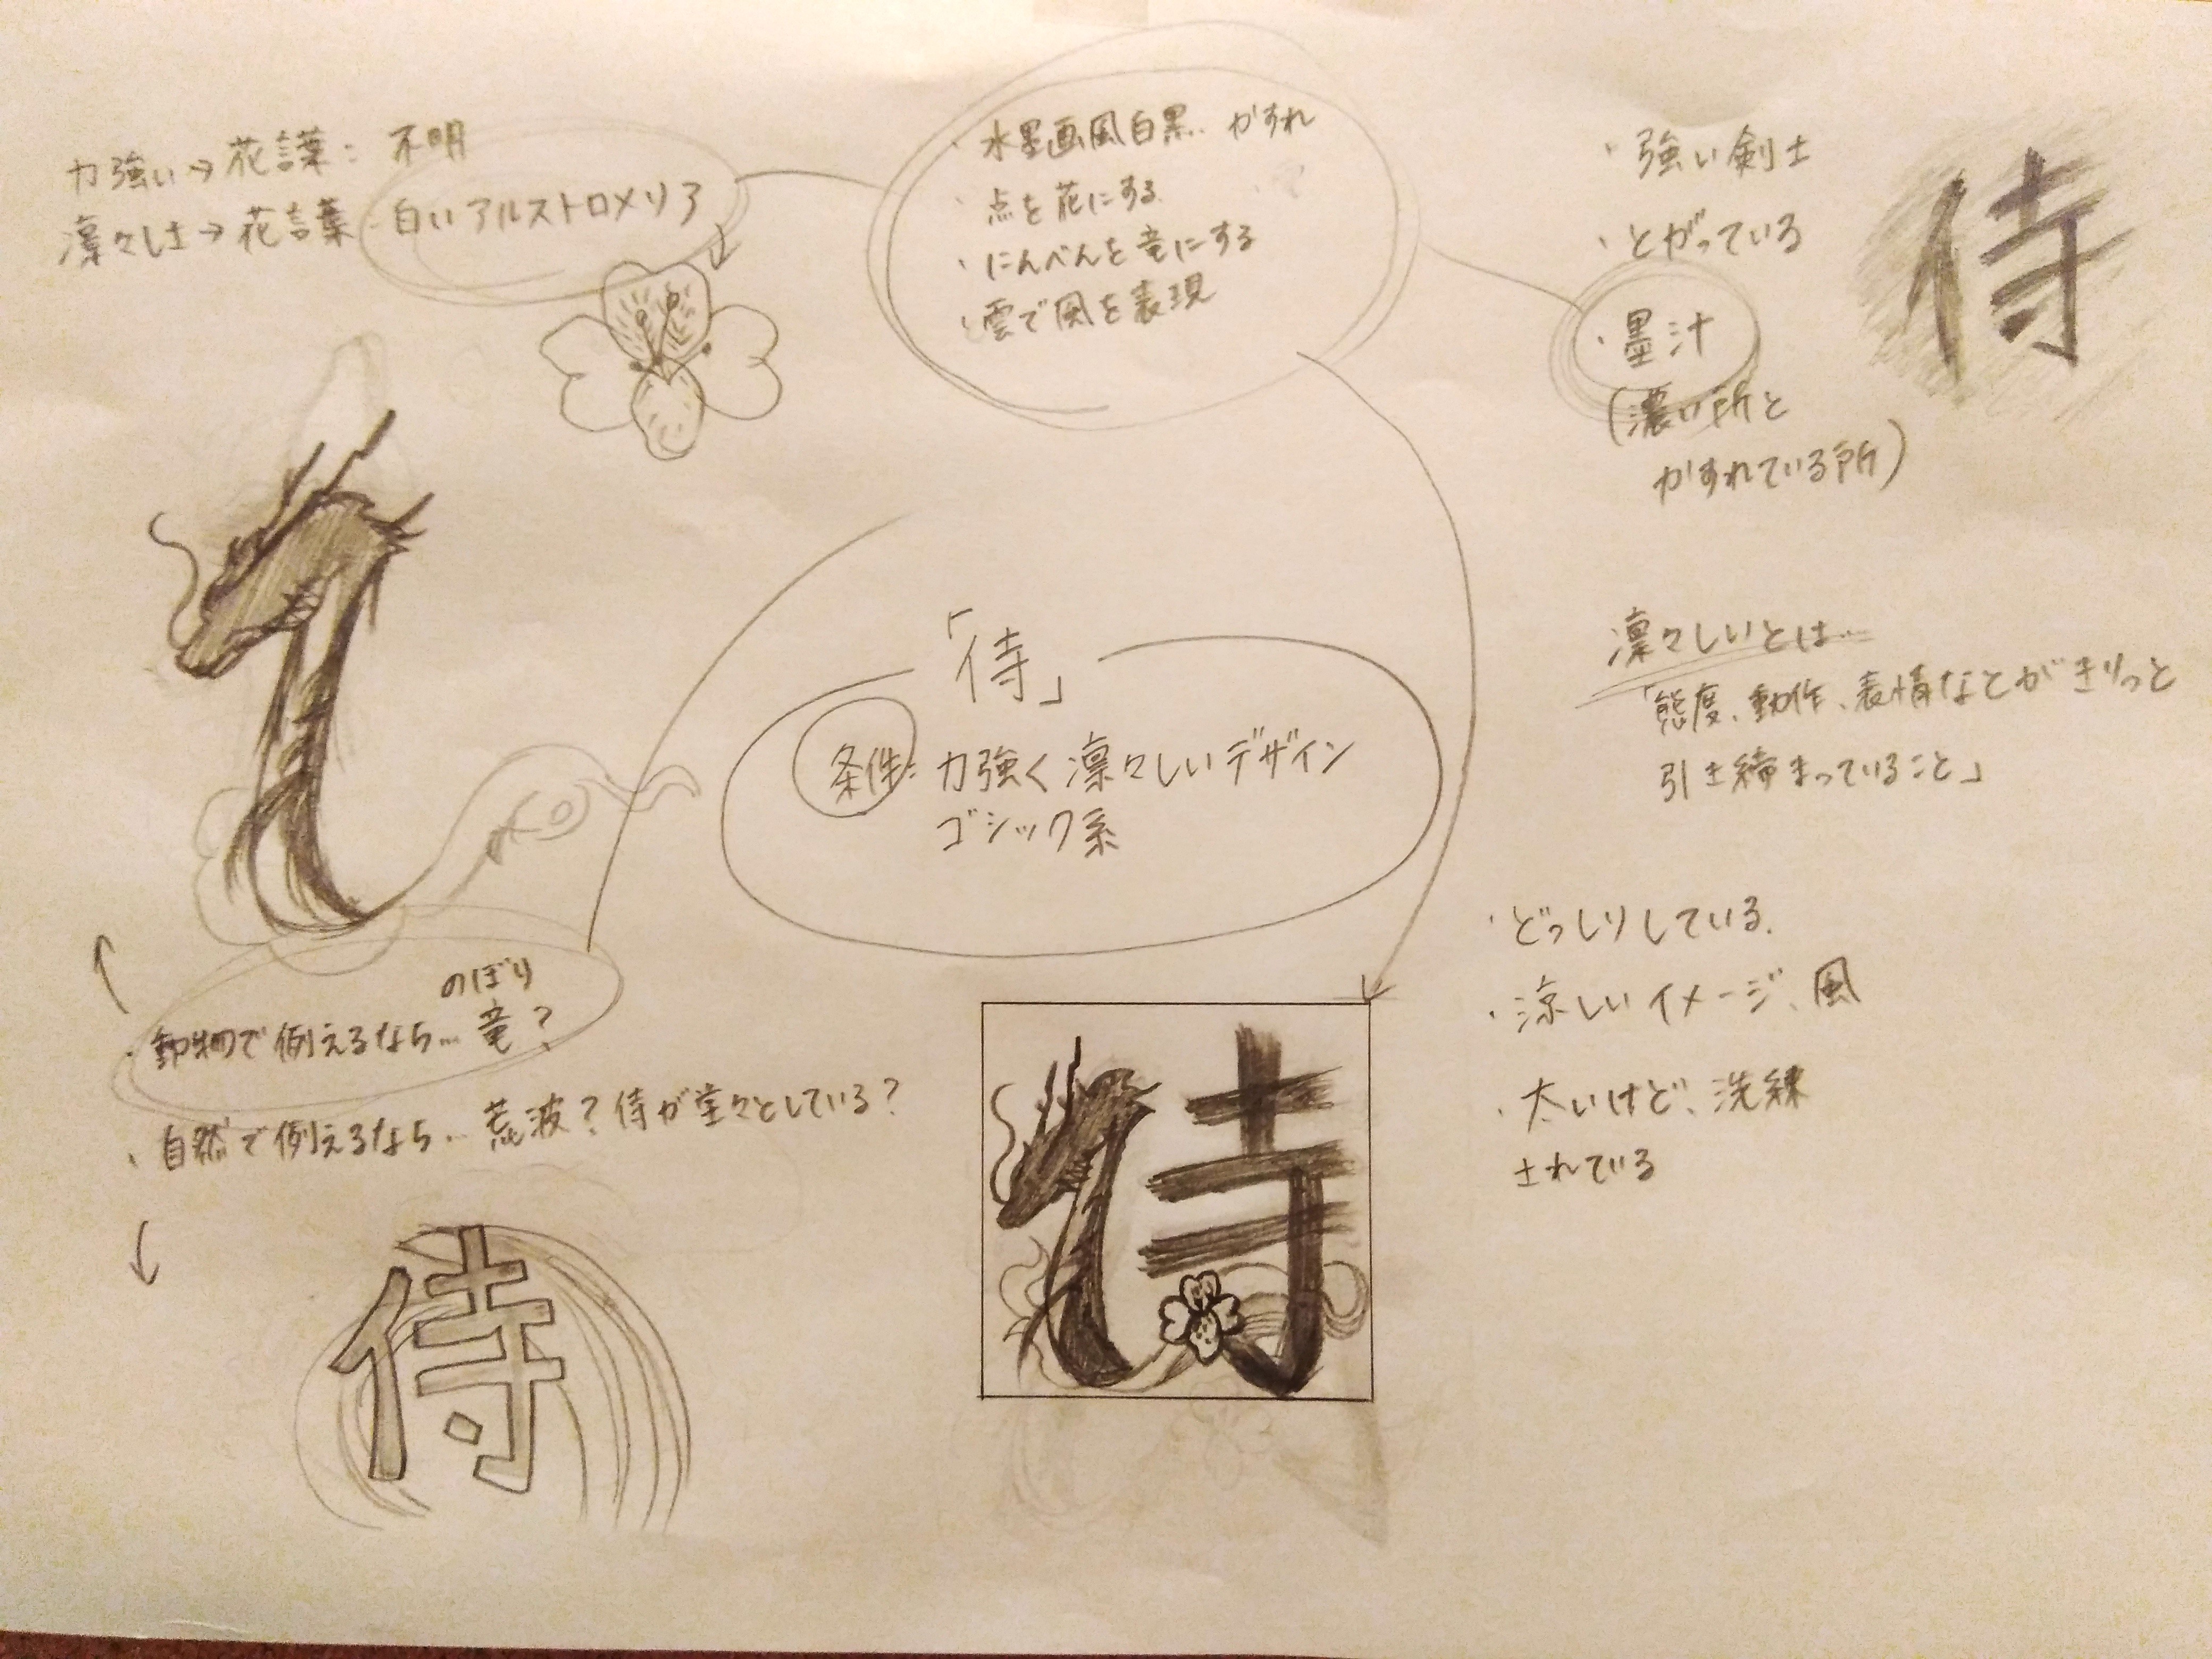 力強い→花言葉：不明
凛々しさ→花言葉：白いアルストロメリア
・水墨画風白黒、かすれ
・点を花にする
・にんべんを竜にする
・雲で風を表現
・強い剣士
・とがっている
・墨汁
(濃い所と
かすれている所)
侍
「侍」
条件：力強く凛々しいデザイン
ゴシック系
凛々しいとは…
「態度、動作、表情などがきりっと
引き締まっていること」
・どっしりしている.
・涼しいイメージ、風
・太いけど、洗練
されている
のぼり
・動物で例えるなら…竜？
・自然で例えるなら…荒波？侍が堂々としている？
侍
侍